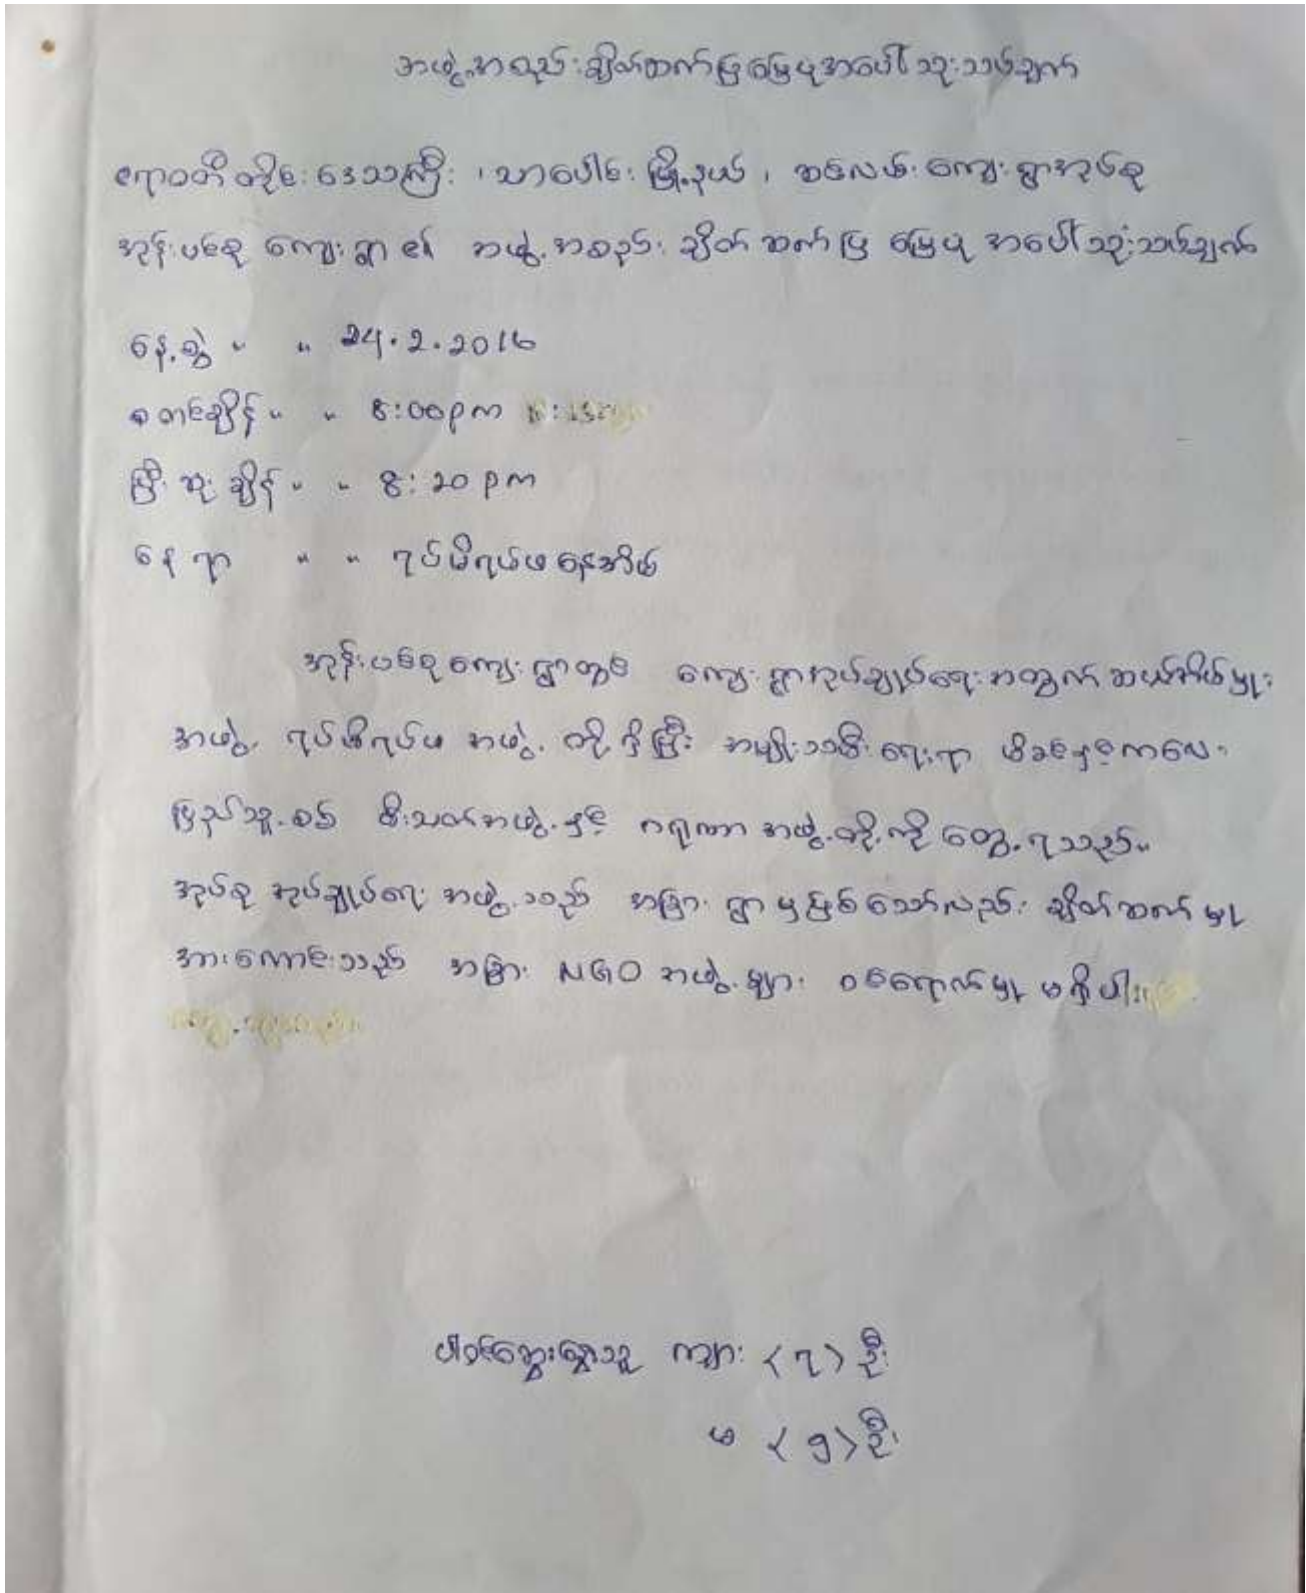 အဖွဲ့အစည်းချိတ်ဆက်ပြမြေပုံအပေါ်သုံးသပ်ချက်
ဧရာဝတီတိုင်းဒေသကြီး ၊ သာပေါင်းမြို့နယ် ၊ ဆင်လမ်းကျေးရွာအုပ်စု
အုန်းပင်စုကျေးရွာ၏ အဖွဲ့အစည်းချိတ်ဆက်ပြမြေပုံအပေါ်သုံးသပ်ချက်
နေ့စွဲ " " 24.2.2016
စတင်ချိန် " " 8:00pm
ပြီးဆုံးချိန် " " 8:20 pm
နေရာ " " ရပ်မိရပ်ဖနေအိမ်
အုန်းပင်စုကျေးရွာတွင် ကျေးရွာအုပ်ချုပ်ရေးအတွက် ဆယ်အိမ်မှူး
အဖွဲ့ ရပ်မိရပ်ဖ အဖွဲ့ တို့ ရှိပြီး အမျိုးသမီးရေးရာ မိခင်နှင့်ကလေး
ပြည်သူ့စစ် မီးသတ်အဖွဲ့နှင့် ကရုဏာအဖွဲ့တို့ကို တွေ့ရသည်။
အုပ်စု အုပ်ချုပ်ရေး အဖွဲ့သည် အခြား ရွာမှဖြစ်သော်လည်း ချိတ်ဆက်မှု
အားကောင်းသည် အခြား NGO အဖွဲ့များ ဝင်ရောက်မှု မရှိပါ။
ပါဝင်ဆွေးနွေးသူ ကျား <၇> ဦး
မ <၅> ဦး